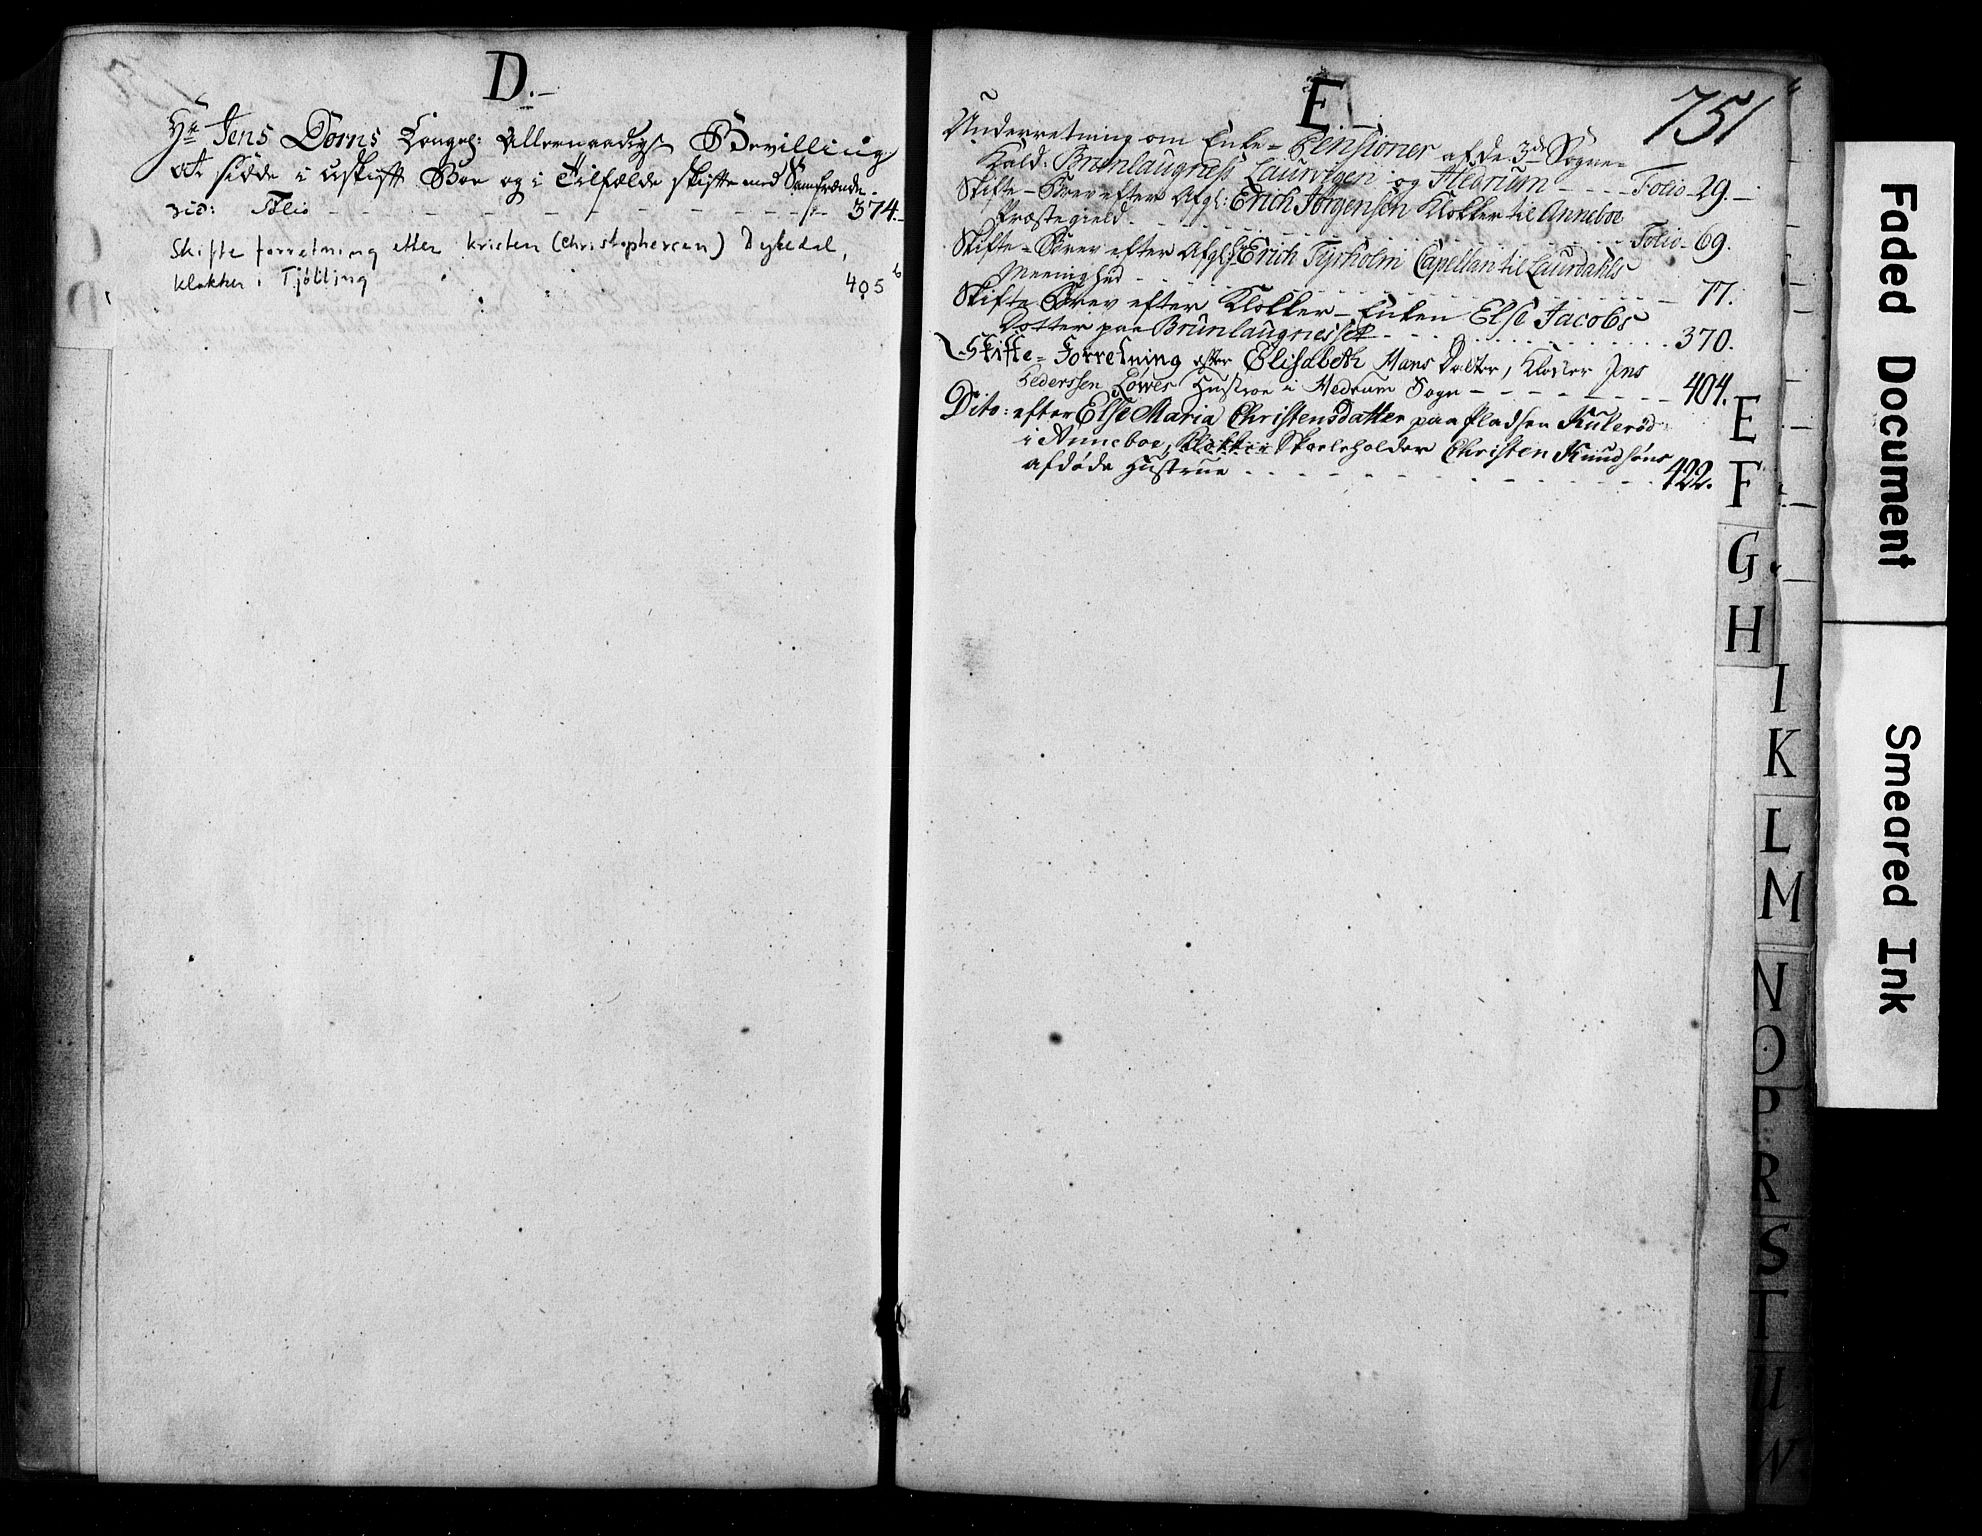 D.
Hr Jens Dorns Kongel: Allernaadigst Bevilling
at sidde i uskift Boe og i Tilfælde skifte med Samfrænde-
Folio - - - - - - - - - - 374.
Skifte forretning etter Kristen (Christophersen) Dykedal,
klokker i Tjölling 405 b
E.
751
Underretning om Enke-Pensioner af de 3de Sogne-
Kald: Brunlaugness Laurvigen og Hedrum - - - - Folio - 29.
Skifte-Brev efter Afgl: Erich Jörgensön Klokker til Anneboe
Præstegield. - - - - - Folio - 69.
Skifte-Brev efter Afgl: Hr Erich Tyrholm Capellan til Laurdahls
Meenighed - - - - - 77.
Skifte Brev efter Klokker-Enken Else Jacobs
Dotter paa Brunlaugnesset - - - - - 370.
Skifte-Forretning efter Elisabeth Hans Dotter, Klokker Jens
Pederssen Löwes Hustroe i Hedrum Sogn - - - - - 404.
Dito: efter Else Maria Christensdatter paa Pladsen Kulerød
i Anneboe, Klokker Skoeleholder Christen Knudsöns
afdöde Hustrue - - - - - 422.
E
F
G
H
I
K
L
M
N
O
P
R
S
T
U
W
Faded Document
Smeared Ink